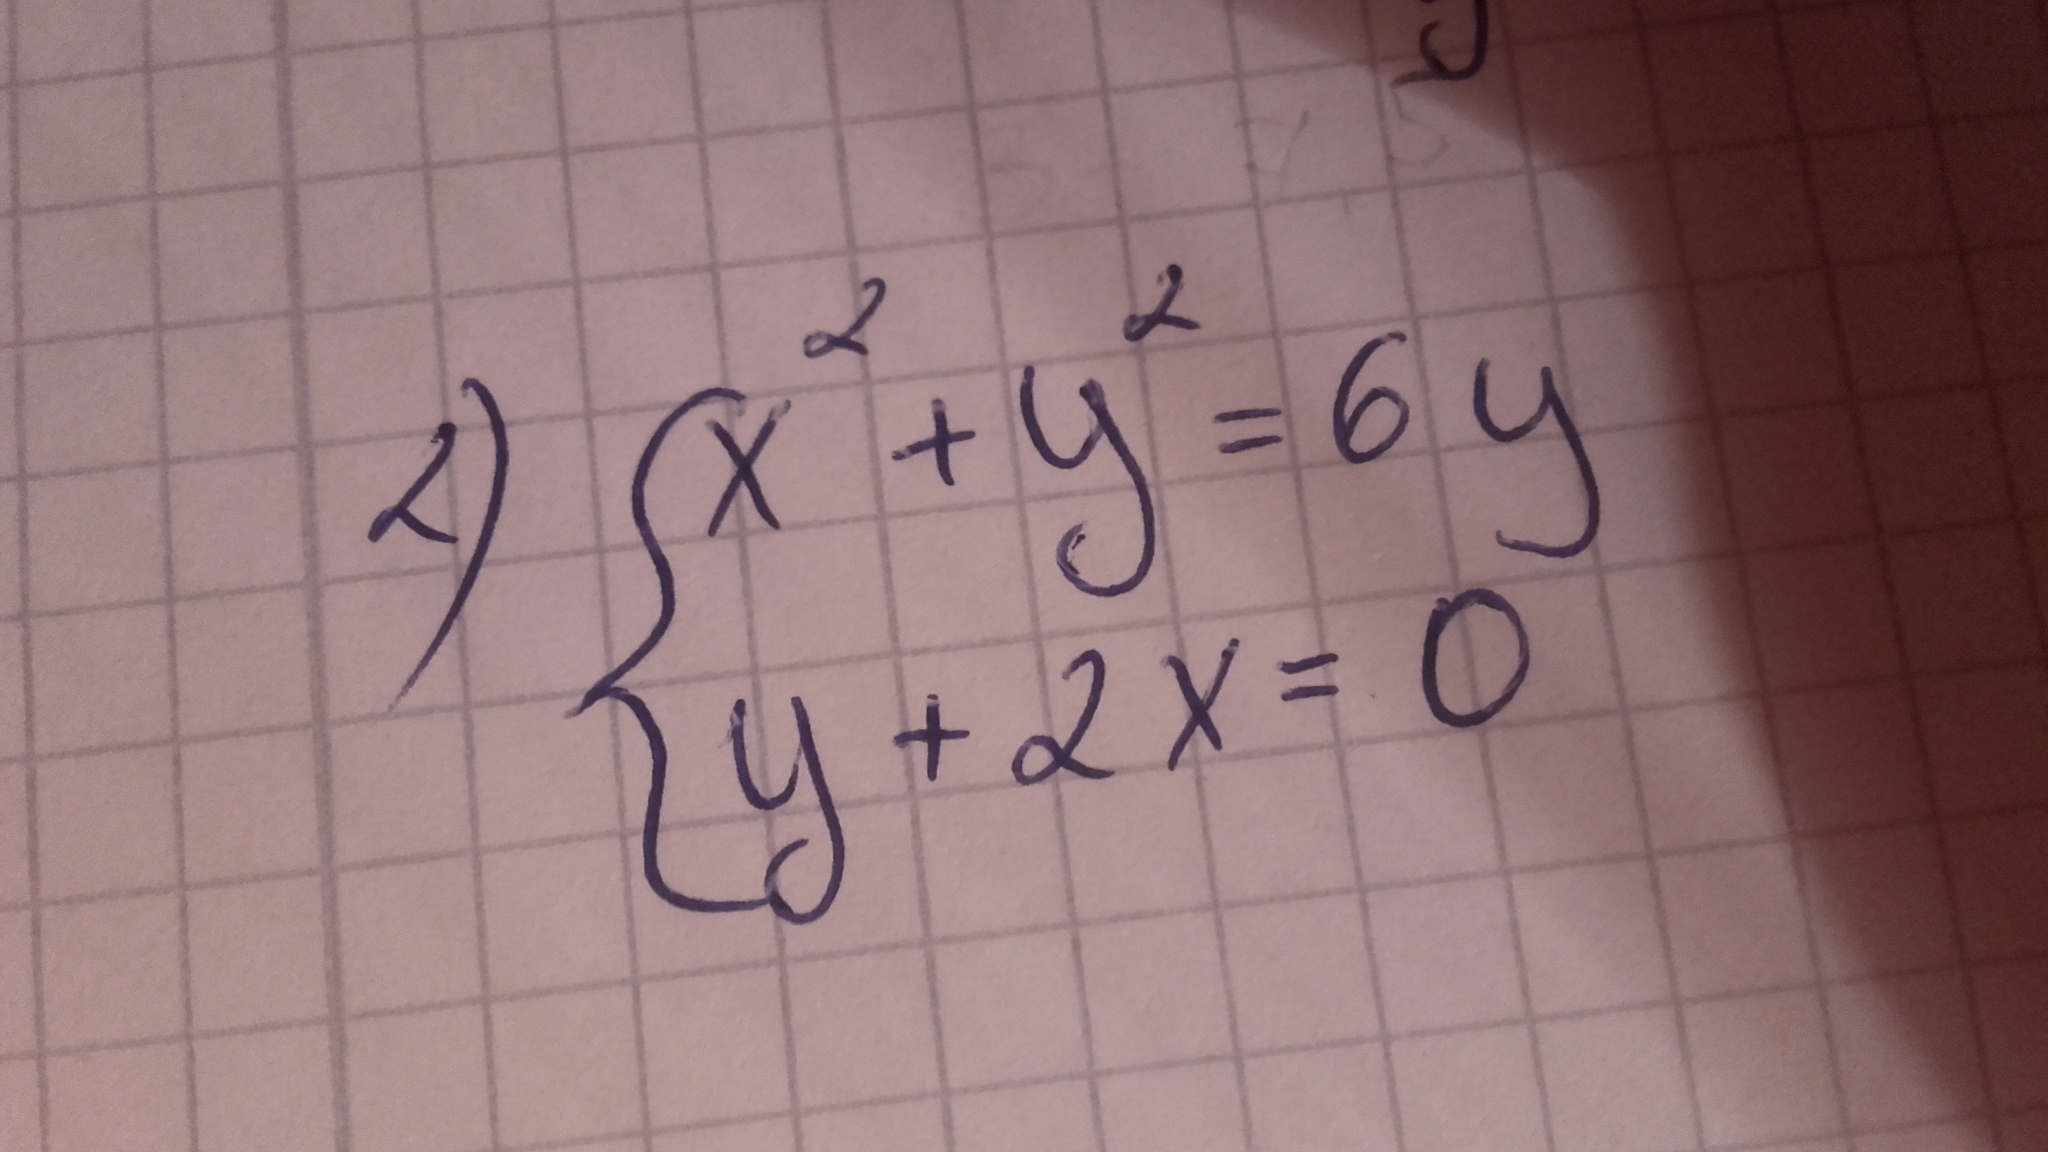 2) x² + y² = 6y
y + 2x = 0